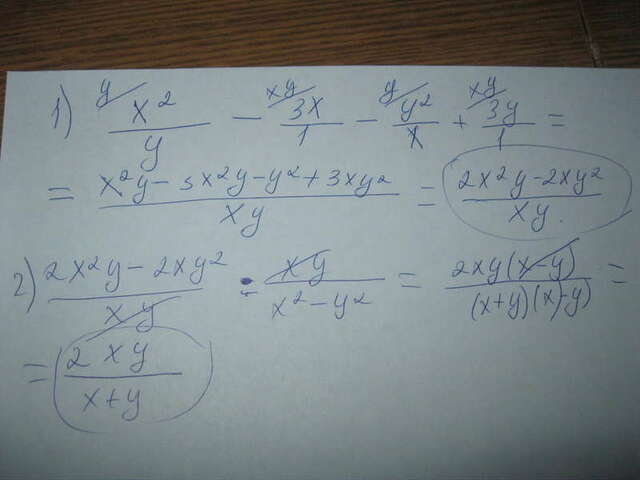 1) y/ x²/y − xy/ 3x/1 − y/ y²/x + xy/ 3y/1 =
= x²y − 3x²y − y² + 3xy²/xy = 2x²y − 2xy²/xy.
2) 2x²y − 2xy²/xy · xy/x² − y² = 2xy(x − y)/(x+y)(x − y) =
= 2xy/x+y